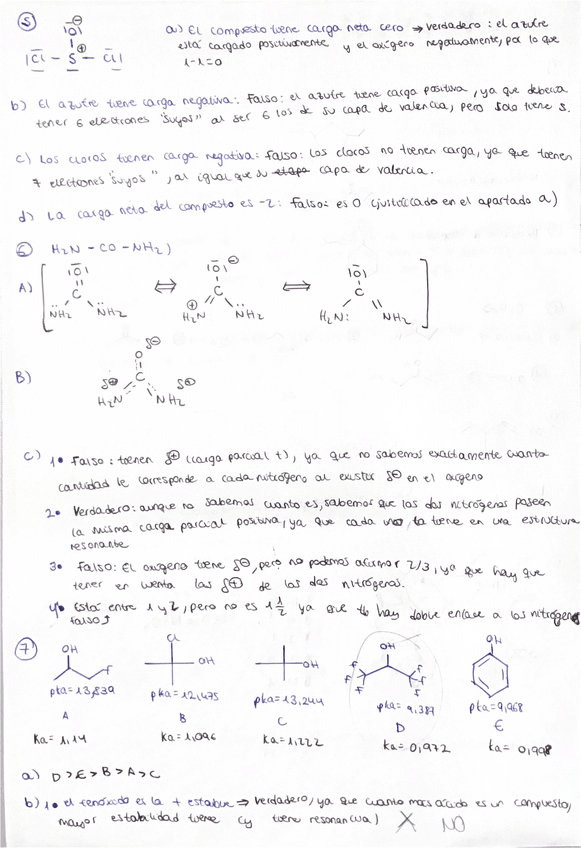 5
|O|
⊖
⊕
|Cl – S – Cl|
a) El compuesto tiene carga neta cero → verdadero: el azufre
está cargado positivamente y el oxígeno negativamente, por lo que
1-1=0
b) El azufre tiene carga negativa: Falso: el azufre tiene carga positiva, ya que debería
tener 6 electrones "suyos" al ser 6 los de su capa de valencia, pero solo tiene 5.
c) Los cloros tienen carga negativa: Falso: los cloros no tienen carga, ya que tienen
7 electrones "suyos", al igual que su capa de valencia.
d) La carga neta del compuesto es -2: Falso: es 0 (justificado en el apartado a)
6 H2N - CO - NH2)
A)
|O| ⇔ |O| ⊖ ⇔ |O|
C C C
NH2 NH2 ⊕ H2N NH2 H2N: NH2
B)
δ⊖
O
δ⊕ C δ⊕
H2N NH2
c) 1• Falso: tienen δ⊕ (carga parcial +), ya que no sabemos exactamente cuanta
cantidad le corresponde a cada nitrógeno al existir δ⊖ en el oxígeno
2• Verdadero: aunque no sabemos cuanto es, sabemos que los dos nitrógenos poseen
la misma carga parcial positiva, ya que cada uno la tiene en una estructura
resonante
3• Falso: El oxígeno tiene δ⊖, pero no podemos afirmar 2/3, ya que hay que
tener en cuenta las δ⊕ de los dos nitrógenos.
4• Está entre 1 y 2, pero no es 1 1/2 ya que hay doble enlace a los nitrógenos
falso↑
7
OH Cl OH OH OH OH
F F F F F F F
pka=13,839 pka=12,475 pka=13,244 pka=9,387 pka=9,968
A B C D E
Ka=1,14 Ka=1,096 Ka=1,222 ka=0,972 ka=0,998
a) D>E>B>A>C
b) 1• el fenóxido es la + estable ⇒ verdadero, ya que cuanto mas ácido es un compuesto,
mayor estabilidad tiene (y tiene resonancia) X NO